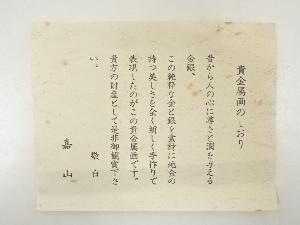 貴金属画のしおり
昔から人の心に尊さと潤を与える
金銀、
この純粋な金と銀を素材に地金の
持つ美しさを全く新しく手作りで
表現したのがこの貴金属画です。
貴方の財産として是非御観賞下さ
い。
敬白
嘉山